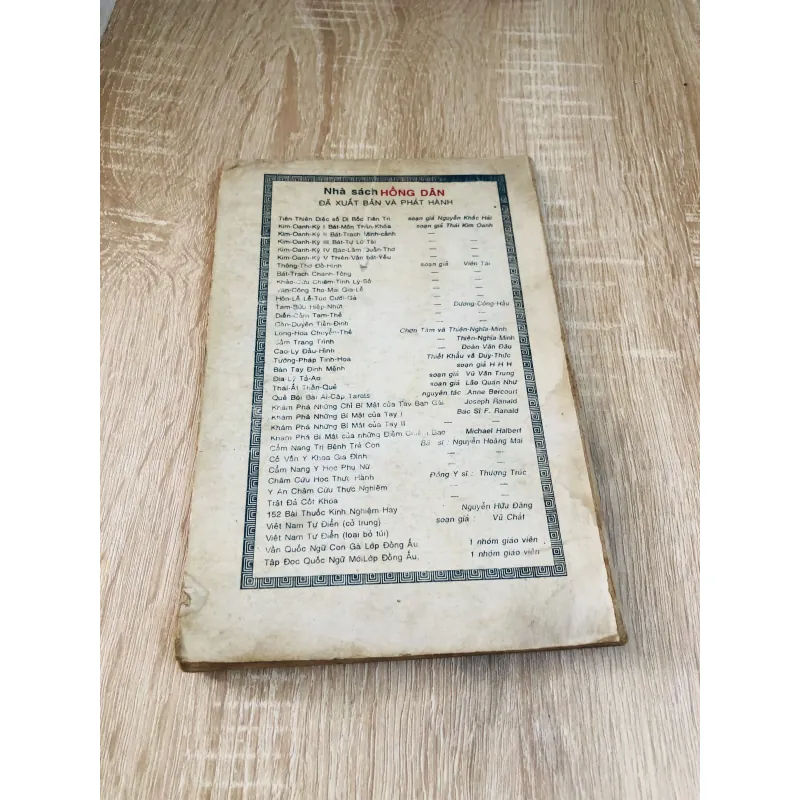 Nhà sách HỒNG DÂN
ĐÃ XUẤT BẢN VÀ PHÁT HÀNH
Tiên Thiên Diệc số Dị Bốc Tiên Tri soạn giả Nguyễn Khắc Hải
Kim-Oanh-Ký I Bát-Môn Thần Khóa soạn giả Thái Kim Oanh
Kim-Oanh-Ký II Bát-Trạch Minh-cảnh —
Kim-Oanh-Ký III Bát-Tự Lữ Tài —
Kim-Oanh-Ký IV Bác-Lãm Quần-Thơ —
Kim-Oanh-Ký V Thiên-Văn bát-Yếu —
Thông-Thơ Đồ-Hình soạn giả Viên Tài
Bát-Trạch Chánh-Tông — —
Khảo-Cứu Chiêm-Tinh Lý-Số — —
Thọ-Mai Gia-Lễ — —
Hôn-Lễ Lễ-Tục Cưới-Gả — —
Tam-Bửu Hiệp Nhứt — Dương-Công-Hậu
Diễn-Cầm Tam-Thế — —
Căn-Duyên Tiền-Định — —
Long-Hoa Chuyển-Thế Chơn Tâm và Thiện-Nghĩa-Minh
Sấm Trạng Trình — Thiện-Nghĩa-Minh
Cao-Ly Đầu-Hình — Đoàn Văn Đâu
Tướng-Pháp Tinh-Hoa Thiết Khẩu và Duy-Thức
Bàn Tay Định Mệnh soạn giả H H H
Địa Lý Tả-Ao soạn giả Vũ Văn Trung
Thái-Ất Thần-Quẻ soạn giả Lão Quán Như
Quẻ Bói Bài Ai-Cập Tarots nguyên tác Anne Bercourt
Khám Phá Những Chỉ Bí Mật của Tay Bạn Gái Joseph Ranald
Khám Phá Những Bí Mật của Tay I Bác Sĩ F. Ranald
Khám Phá Những Bí Mật của Tay II — —
Khám Phá Bí Mật của những Điềm Chiêm Bao Michael Halbert
Cẩm Nang Trị Bệnh Trẻ Con Bác sĩ : Nguyễn Hoàng Mai
Cố Vấn Y Khoa Gia Đình — —
Cẩm Nang Y Học Phụ Nữ — —
Châm Cứu Học Thực Hành Đông Y sĩ : Thượng Trúc
Y Án Châm Cứu Thực Nghiệm — —
Trật Đả Cốt Khoa — —
152 Bài Thuốc Kinh Nghiệm Hay Nguyễn Hữu Đăng
Việt Nam Tự Điển (cỡ trung) soạn giả : Vũ Chất
Việt Nam Tự Điển (loại bỏ túi) — —
Vần Quốc Ngữ Con Gà Lớp Đồng Ấu. 1 nhóm giáo viên
Tập Đọc Quốc Ngữ Mới Lớp Đồng Ấu. 1 nhóm giáo viên